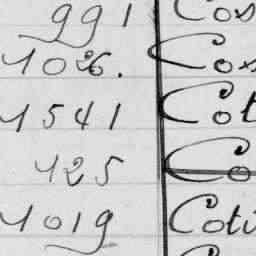 991 Cos
1026. Cos
1541 Cot
125 Co
1019 Coti